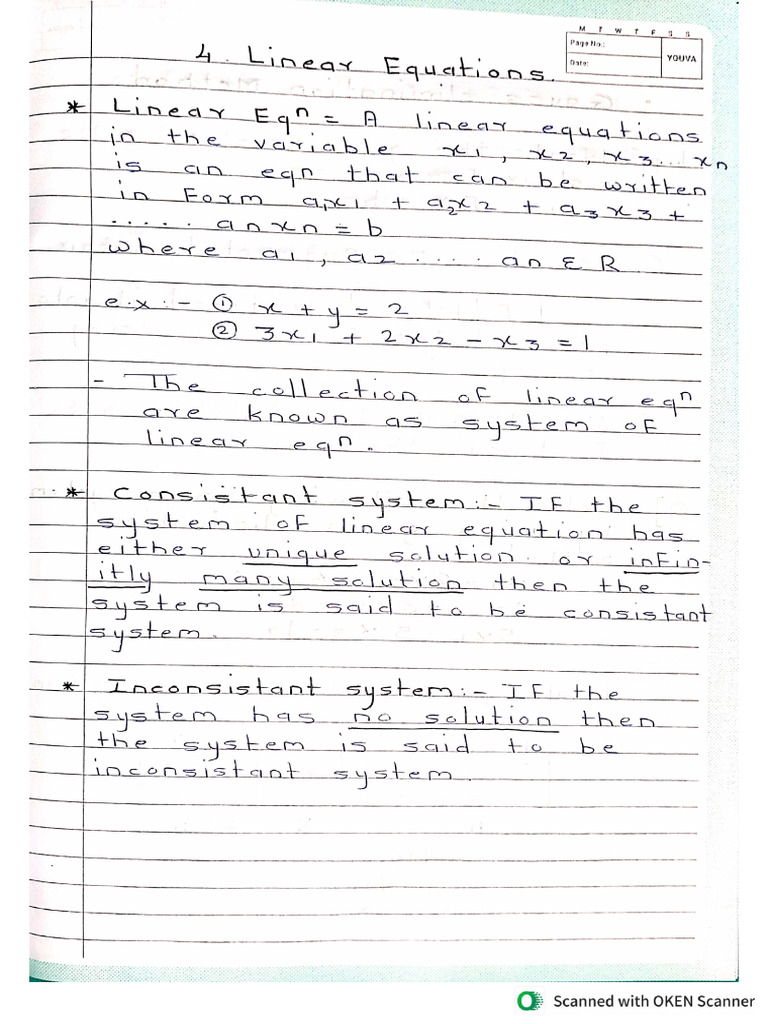 M T W T F S S
Page No.:
Date:
YOUVA
4. Linear Equations.
* Linear Eqⁿ = A linear equations
in the variable x1, x2, x3... xn
is an eqn that can be written
in Form a1x1 + a2x2 + a3x3 +
..... anxn = b
where a1, a2 .... an ε R
e.x :- ① x + y = 2
② 3x1 + 2x2 - x3 = 1
- The collection of linear eqⁿ
are known as system of
linear eqⁿ.
* Consistant system:- IF the
system of linear equation has
either unique solution or infin-
itly many solution then the
system is said to be consistant
system.
* Inconsistant system:- IF the
system has no solution then
the system is said to be
inconsistant system.
Scanned with OKEN Scanner